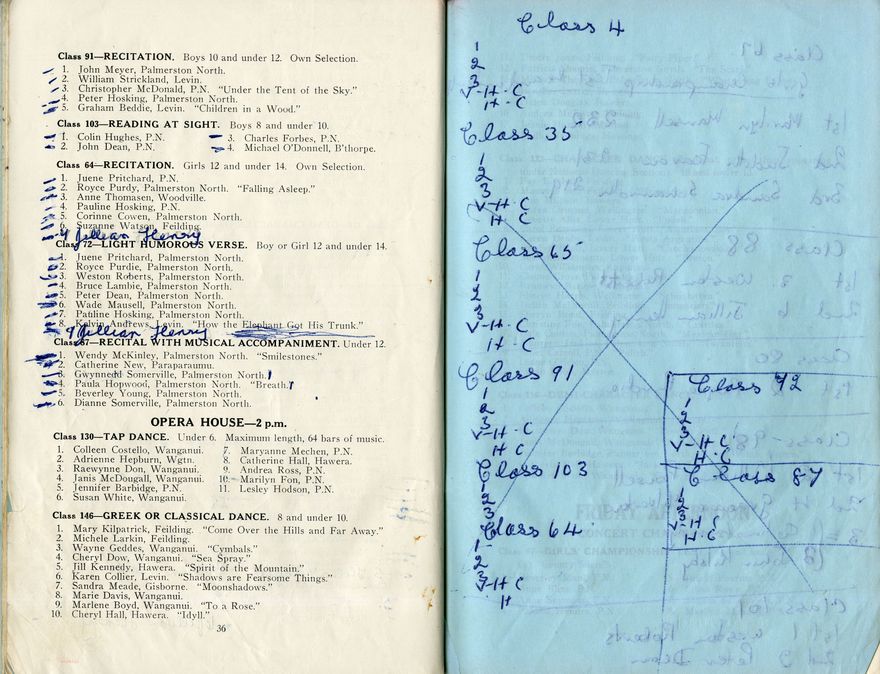 Class 91—RECITATION. Boys 10 and under 12. Own Selection.
1. John Meyer, Palmerston North.
2. William Strickland, Levin.
3. Christopher McDonald, P.N. "Under the Tent of the Sky."
4. Peter Hosking, Palmerston North.
5. Graham Beddie, Levin. "Children in a Wood."
Class 103—READING AT SIGHT. Boys 8 and under 10.
1. Colin Hughes, P.N. 3. Charles Forbes, P.N.
2. John Dean, P.N. 4. Michael O'Donnell, B'thorpe.
Class 64—RECITATION. Girls 12 and under 14. Own Selection.
1. Juene Pritchard, P.N.
2. Royce Purdy, Palmerston North. "Falling Asleep."
3. Anne Thomasen, Woodville.
4. Pauline Hosking, P.N.
5. Corinne Cowen, Palmerston North.
6. Suzanne Watson, Feilding.
Jillian Henry
Class 72—LIGHT HUMOROUS VERSE. Boy or Girl 12 and under 14.
1. Juene Pritchard, Palmerston North.
2. Royce Purdie, Palmerston North.
3. Weston Roberts, Palmerston North.
4. Bruce Lambie, Palmerston North.
5. Peter Dean, Palmerston North.
6. Wade Mausell, Palmerston North.
7. Pauline Hosking, Palmerston North.
8. Kelvin Andrews, Levin. "How the Elephant Got His Trunk."
9 Jillian Henry
Class 87—RECITAL WITH MUSICAL ACCOMPANIMENT. Under 12.
1. Wendy McKinley, Palmerston North. "Smilestones."
2. Catherine New, Paraparaumu.
3. Gwynnedd Somerville, Palmerston North.
4. Paula Hopwood, Palmerston North. "Breath."
5. Beverley Young, Palmerston North.
6. Dianne Somerville, Palmerston North.
OPERA HOUSE—2 p.m.
Class 130—TAP DANCE. Under 6. Maximum length, 64 bars of music.
1. Colleen Costello, Wanganui. 7. Maryanne Mechen, P.N.
2. Adrienne Hepburn, Wgtn. 8. Catherine Hall, Hawera.
3. Raewynne Don, Wanganui. 9. Andrea Ross, P.N.
4. Janis McDougall, Wanganui 10. Marilyn Fon, P.N.
5. Jennifer Barbidge, P.N. 11. Lesley Hodson, P.N.
6. Susan White, Wanganui.
Class 146—GREEK OR CLASSICAL DANCE. 8 and under 10.
1. Mary Kilpatrick, Feilding. "Come Over the Hills and Far Away."
2. Michele Larkin, Feilding.
3. Wayne Geddes, Wanganui. "Cymbals."
4. Cheryl Dow, Wanganui. "Sea Spray."
5. Jill Kennedy, Hawera. "Spirit of the Mountain."
6. Karen Collier, Levin. "Shadows are Fearsome Things."
7. Sandra Meade, Gisborne. "Moonshadows."
8. Marie Davis, Wanganui.
9. Marlene Boyd, Wanganui. "To a Rose."
10. Cheryl Hall, Hawera. "Idyll."
36
Class 4
1
2
3
V-H.C
H.C
Class 35
1
2
3
V-H.C
H.C
Class 65
1
2
3
V-H.C
H.C
Class 91
1
2
3
V-H.C
H C
Class 103
1
2
3
Class 64
1
2
3
V-H C
H
Class 72
1
2
3
V-H C
H.C
Class 87
1
2
3
V-H
H.C